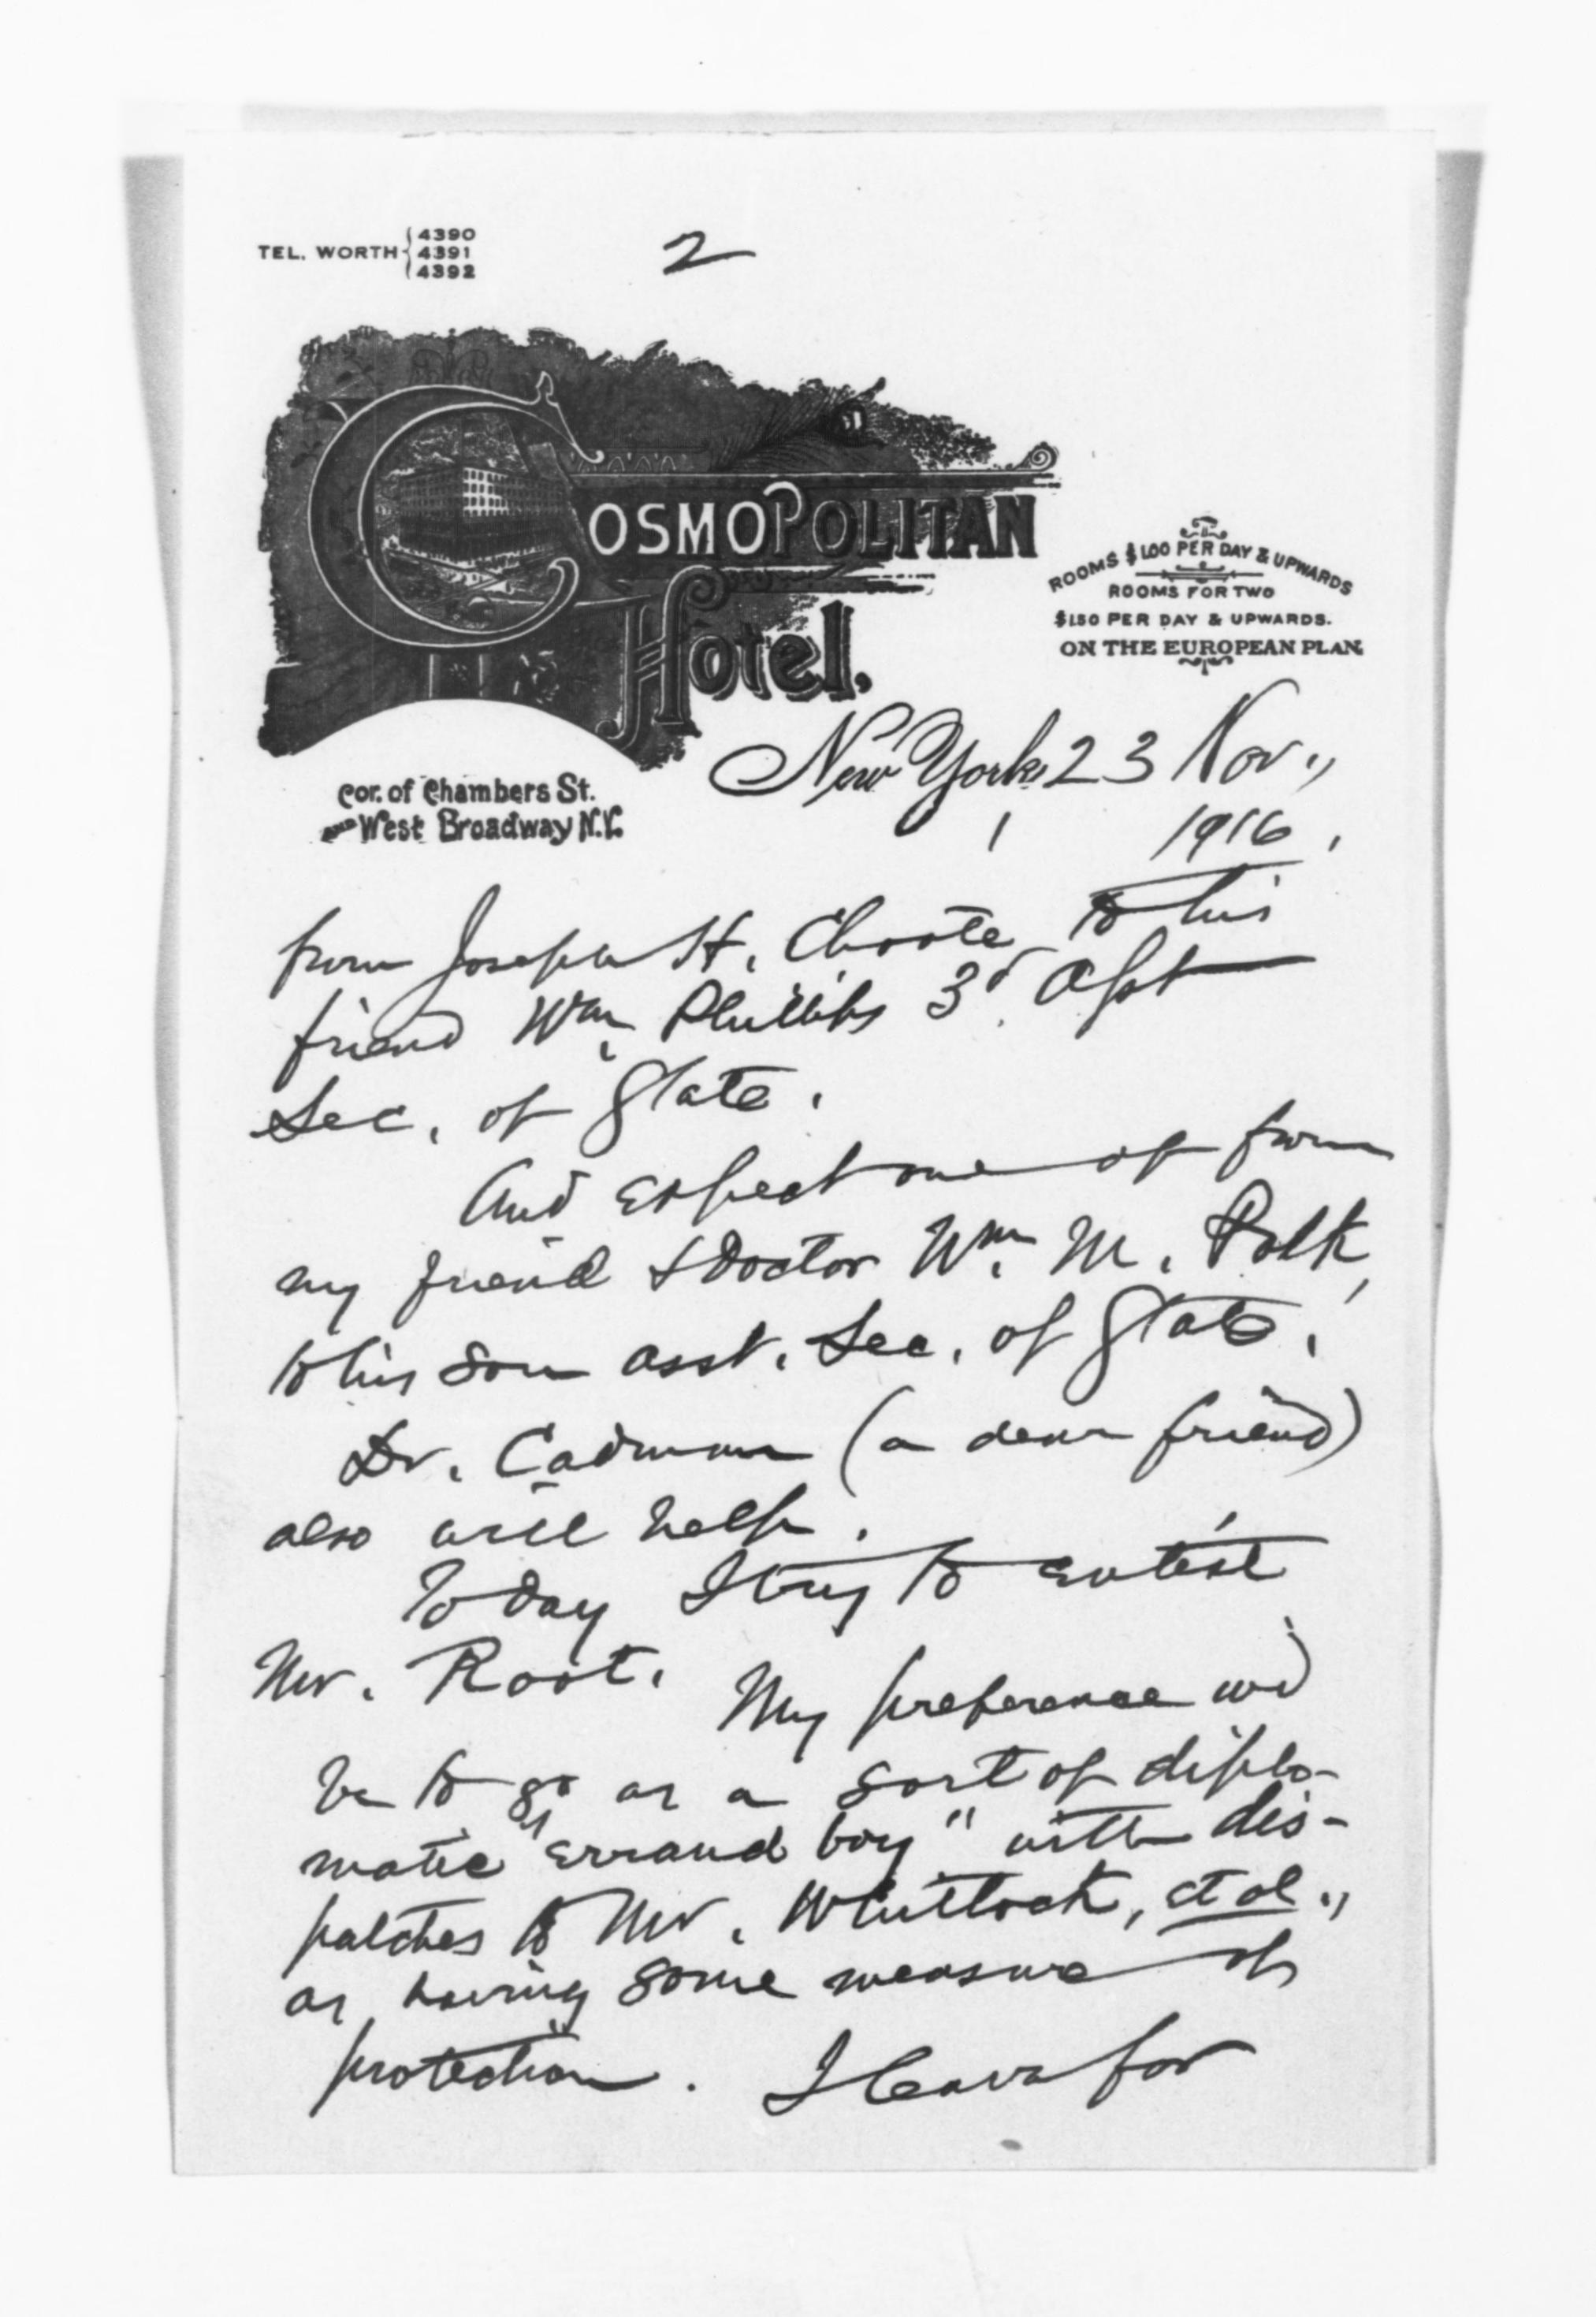 TEL. WORTH { 4390
4391
4392
2
COSMOPOLITAN
Hotel.
ROOMS $1.00 PER DAY & UPWARDS
ROOMS FOR TWO
$1.50 PER DAY & UPWARDS.
ON THE EUROPEAN PLAN.
Cor. of Chambers St.
AND West Broadway N.Y.
New York, 23 Nov.,
1916,
from Joseph H. Choate to his
friend Wm. Phillips 3d Asst
Sec. of State.
And expect one of from
my friend & Doctor Wm. M. Polk,
to his son asst. Sec. of State.
Dr. Cadman (a dear friend)
also will help.
Today I try to entist
Mr. Root. My preference wd
be to go as a sort of diplo-
matic "errand boy" with dis-
patches to Mr. Whitlock, et al.,
as having some measure of
protection. I leave for